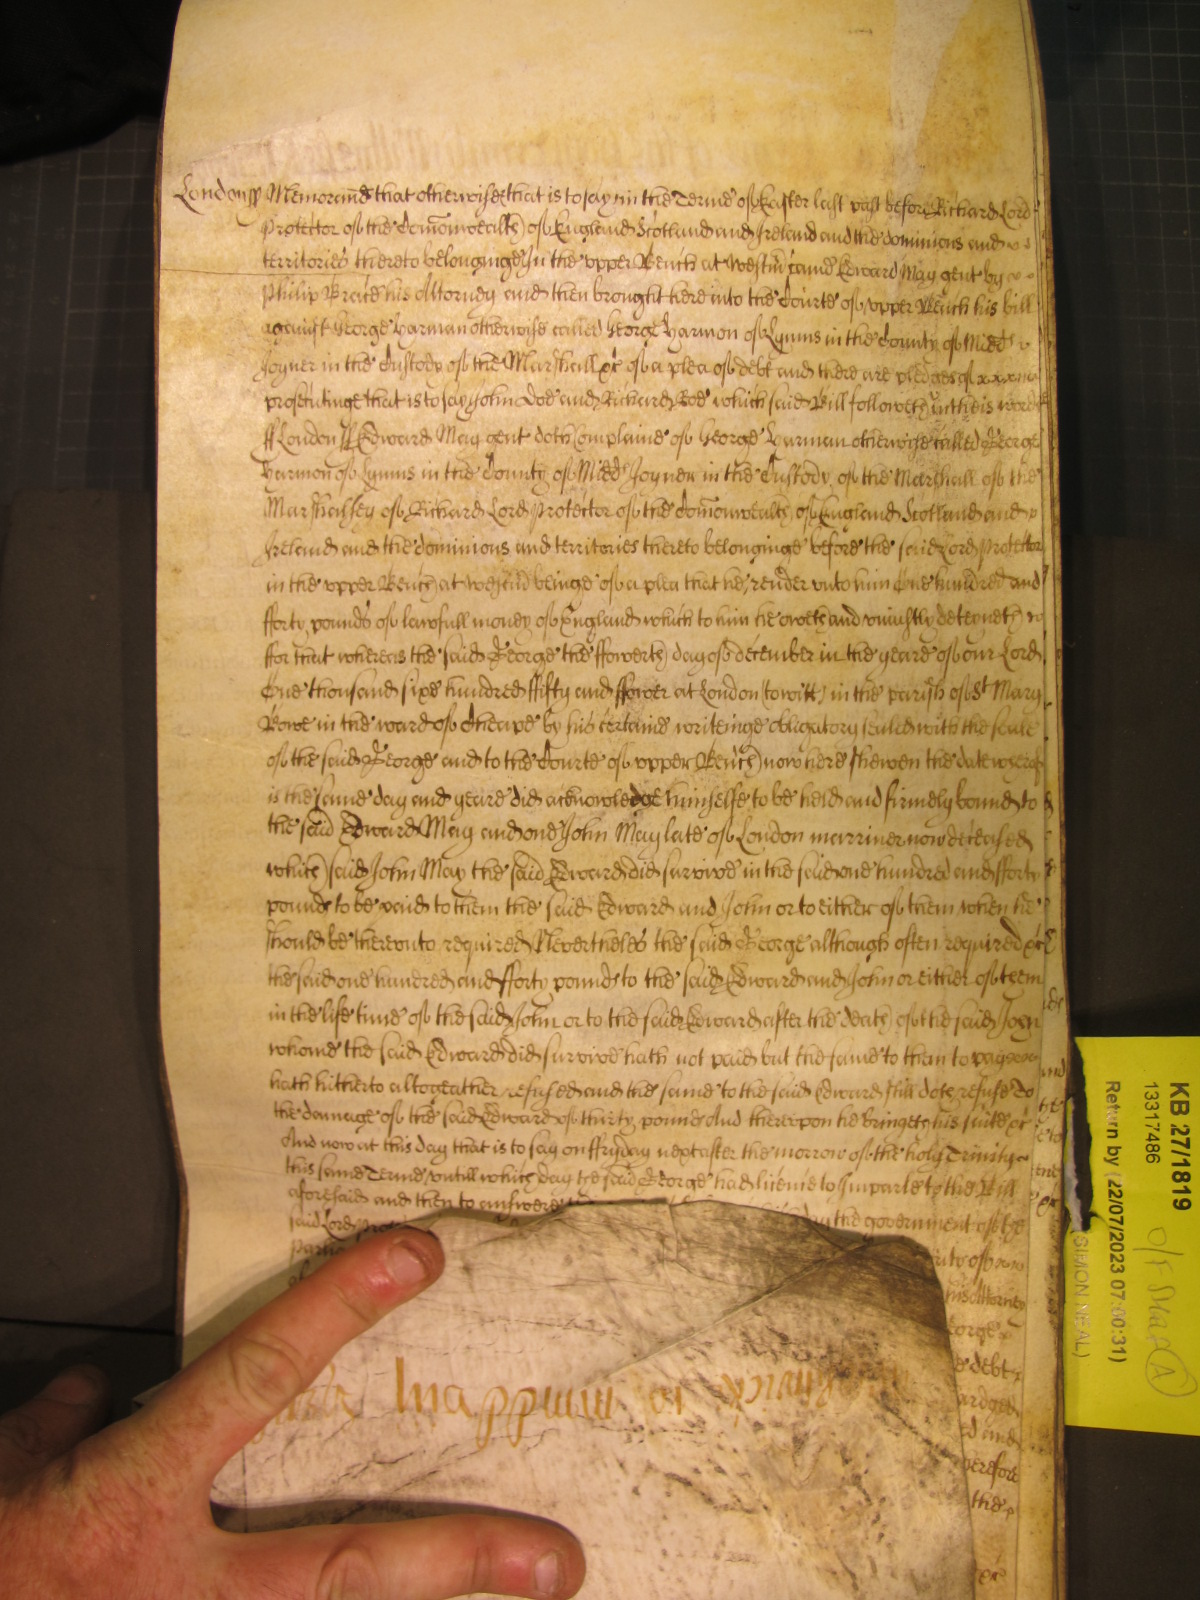 London ss Memorand that otherwise that is to say in the Terme of Easter last past before Richard Lord
Protector of the Comonwealth of England Scotland and Ireland and the dominions and
territories thereto belonginge In the upper Bench at Westm came Edward May gent by
Philip his Attorney and then brought here into the Courte of upper Bench his bill
against George Harman otherwise called George Harmon of Lymus in the County of Midd
Joyner in the Custody of the Marshall &c of a plea of debt and there are pledges of
prosecutinge that is to say John Doe and Richard Roe which said Bill followeth in theis words
ss London ss Edward May gent doth Complaine of George Harman otherwise called George
Harmon of Lymus in the County of Midd Joyner in the Custody of the Marshall of the
Marshalsey of Richard Lord Protector of the Comonwealth of England Scotland and
Ireland and the dominions and territories thereto belonginge before the said Lord Protector
in the upper Bench at Westm beinge of a plea that he render unto him One hundred and
fforty pounds of lawfull money of England which to him he oweth and uniustly deteyneth
ffor that whereas the said George the ffowerth day of December in the yeare of our Lord
One thousand sixe hundred ffifty and ffower at London (to witt) in the parish of St Mary
Bowe in the ward of Cheape by his certaine writeinge obligatory sealed with the seale
of the said George and to the Courte of upper Bench now here shewen the date wherof
is the same day and yeare did acknowledge himselfe to be held and firmely bound to
the said Edward May and one John May late of London marriner now deceased
which said John May the said Edward did survive in the said one hundred and fforty
pounds to be paid to them the said Edward and John or to either of them when he
should be thereunto required Nevertheles the said George although often required &c
the said one hundred and fforty pounds to the said Edward and John or either of them
in the life time of the said John or to the said Edward after the death of the said John
whome the said Edward did survive hath not paid but the same to them to pay
hath hitherto altogeather refused and the same to the said Edward still doth refuse To
the damage of the said Edward of thirty pounds And thereupon he bringeth his suite &c
And now at this day that is to say on ffryday next after the morrow of the holy Trinity
this same Terme untill which day the said George had licence to Imparle to the Bill
aforesaid and then to answere
said Lord the government of the
his Attorney
George
debt
and
therefore
the
&c
KB 27/1819
13317486
Return by (22/07/2023 07:00:31)
SIMON NEAL)
A